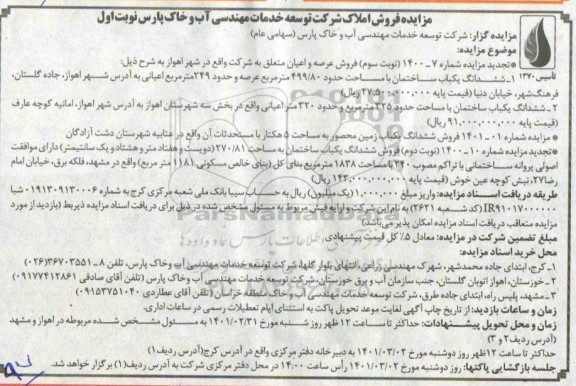 مزایده فروش املاک شرکت توسعه خدمات مهندسی آب و خاک پارس نوبت اول
مزایده گزار: شرکت توسعه خدمات مهندسی آب و خاک پارس (سهامی عام)
موضوع مزایده:
تأسیس ۱۳۷۰
* تجدید مزایده شماره ۷-۱۴۰۰ (نوبت سوم) فروش عرصه و اعیان متعلق به شرکت واقع در شهر اهواز به شرح ذیل:
۱- ششدانگ یکباب ساختمان با مساحت حدود ۴۹۹/۸۰ مترمربع عرصه و حدود ۳۴۹ مترمربع اعیانی به آدرس شهر اهواز، جاده گلستان،
فرهنگ‌شهر، خیابان دنیا (قیمت پایه ۲۷,۵۰۰,۰۰۰,۰۰۰ ریال)
۲- ششدانگ یکباب ساختمان با مساحت حدود ۳۲۵ مترمربع و حدود ۳۲۰ متر اعیانی واقع در بخش سه شهرستان اهواز به آدرس شهر اهواز، امانیه کوچه عارف
(قیمت پایه ۹۱,۰۰۰,۰۰۰,۰۰۰ ریال)
* مزایده شماره ۰۱-۱۴۰۱ فروش ششدانگ یکباب زمین محصور به مساحت ۵ هکتار با مستحدثات آن واقع در عنابیه شهرستان دشت آزادگان
* تجدید مزایده شماره ۱۰-۱۴۰۰ (نوبت دوم) فروش ششدانگ یکباب ساختمان به مساحت ۲۷۰/۸۱ (دویست و هفتاد متر و هشتاد و یک سانتیمتر) دارای موافقت
اصولی پروانه ساختمانی با تراکم مصوب ۲۴۰ با مساحت ۱۸۳۸ مترمربع بنای کل (بنای خالص مسکونی ۱۱۸۱ متر مربع) واقع در مشهد، فلکه برق، خیابان امام
رضا ۲۷، نبش کوچه عین خوش (قیمت پایه ۱۴۳,۰۰۰,۰۰۰,۰۰۰ ریال)
طریقه دریافت اسناد مزایده: واریز مبلغ ۱,۰۰۰,۰۰۰ (یک میلیون) ریال به حساب سیبا بانک ملی شعبه مرکزی کرج به شماره ۰۱۹۱۳۰۹۱۳۰۰۶ شبا
IR۹۱۰۱۷۰۰۰۰۰۰ (کد شعبه ۲۶۲۱) به نام این شرکت و ارایه فیش مربوطه به مسئول مشخص شده در ذیل برای دریافت اسناد مزایده ذیربط (بازدید از مورد
مزایده متعاقب دریافت اسناد مزایده امکان پذیر می‌باشد)
مبلغ تضمین شرکت در مزایده: معادل ۵٪ کل قیمت پیشنهادی
محل خرید اسناد مزایده:
۱- کرج، ابتدای جاده محمدشهر، شهرک مهندسی زراعی، انتهای بلوار گلها، شرکت توسعه خدمات مهندسی آب و خاک پارس، تلفن ۸-۳۶۷۰۳۵۵۱ (۰۲۶)
۲- خوزستان، اهواز اتوبان گلستان، جنب سازمان آب و برق خوزستان، شرکت توسعه خدمات مهندسی آب و خاک پارس (تلفن آقای صادقی ۰۹۱۷۷۴۱۲۸۶۱)
۳- مشهد، پلیس راه، ابتدای جاده طرق، شرکت توسعه خدمات مهندسی آب و خاک منطقه خراسان (تلفن آقای عطاردی ۰۹۱۵۳۷۵۱۰۴۰)
زمان و ساعات بازدید: از تاریخ چاپ آگهی لغایت موعد تحویل پاکت به استثنای ایام تعطیلات رسمی در ساعات اداری.
زمان و محل تحویل پیشنهادات: حداکثر تا ساعت ۱۲ ظهر روز شنبه مورخ ۱۴۰۱/۰۲/۳۱ به مسئول مشخص شده مربوطه در اهواز و مشهد
(آدرس ردیف ۲ و ۳)
حداکثر تا ساعت ۱۲ ظهر روز دوشنبه مورخ ۱۴۰۱/۰۳/۰۲ به دبیرخانه دفتر مرکزی واقع در آدرس کرج (آدرس ردیف ۱)
جلسه بازگشایی پاکتها: روز دوشنبه مورخ ۱۴۰۱/۰۳/۰۲ رأس ساعت ۱۴:۰۰ در محل دفتر مرکزی شرکت به آدرس ردیف (۱) برگزار خواهد شد.